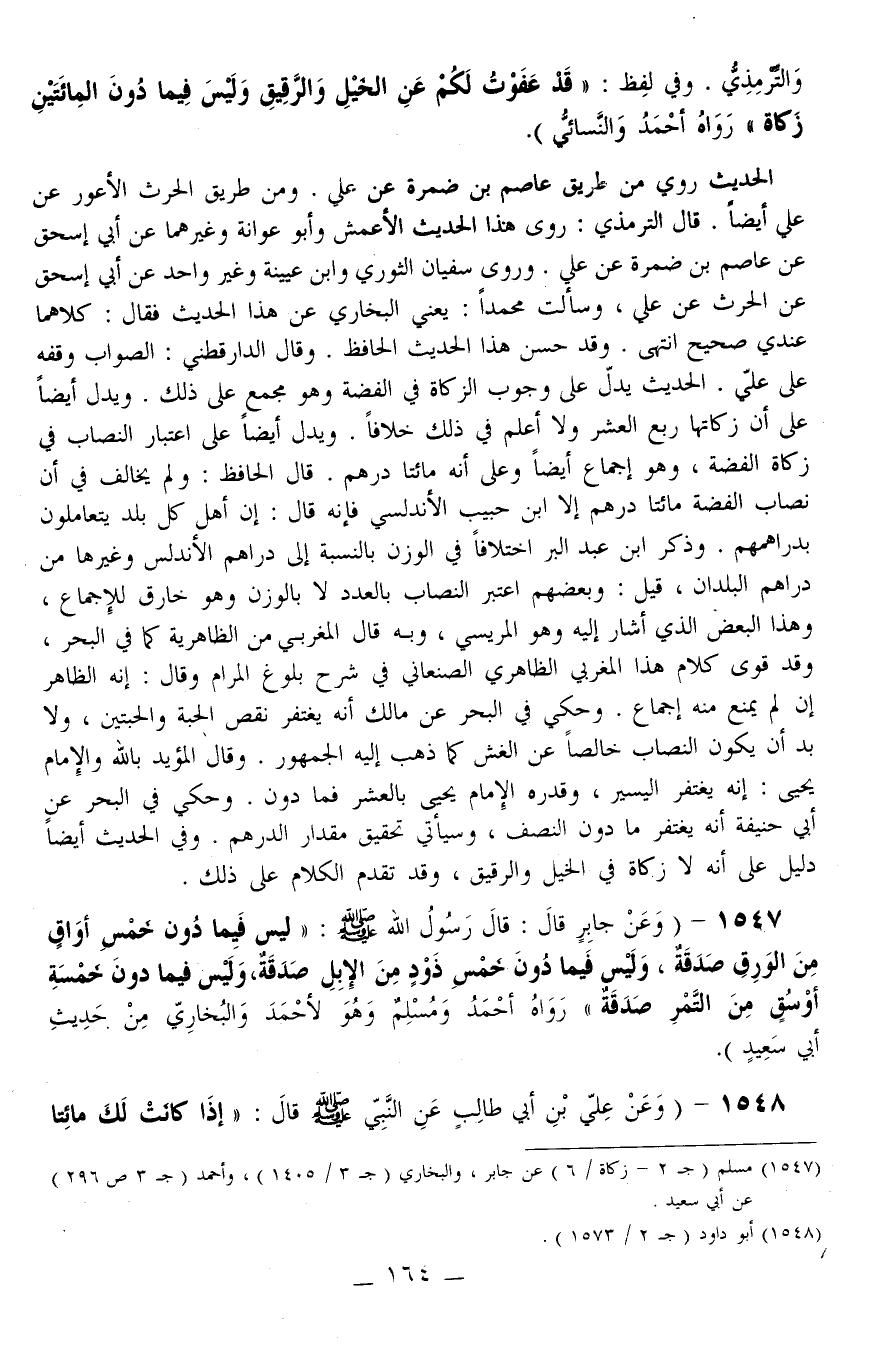 وَالتِّرْمِذِيُّ . وفي لفظ : « قَدْ عَفَوْتُ لَكُمْ عَنِ الخَيْلِ وَالرَّقِيقِ وَلَيْسَ فِيما دُونَ المِائَتَيْنِ
زَكاة » رَوَاهُ أحْمَدُ وَالنَّسائيُّ ).
الحديث روي من طريق عاصم بن ضمرة عن علي . ومن طريق الحرث الأعور عن
علي أيضاً . قال الترمذي : روى هذا الحديث الأعمش وأبو عوانة وغيرهما عن أبي إسحق
عن عاصم بن ضمرة عن علي . وروى سفيان الثوري وابن عيينة وغير واحد عن أبي إسحق
عن الحرث عن علي ، وسألت محمداً : يعني البخاري عن هذا الحديث فقال : كلاهما
عندي صحيح انتهى . وقد حسن هذا الحديث الحافظ . وقال الدارقطني : الصواب وقفه
على عليّ . الحديث يدلّ على وجوب الزكاة في الفضة وهو مجمع على ذلك . ويدل أيضاً
على أن زكاتها ربع العشر ولا أعلم في ذلك خلافاً . ويدل أيضاً على اعتبار النصاب في
زكاة الفضة ، وهو إجماع أيضاً وعلى أنه مائتا درهم . قال الحافظ : ولم يخالف في أن
نصاب الفضة مائتا درهم إلا ابن حبيب الأندلسي فإنه قال : إن أهل كل بلد يتعاملون
بدراهمهم . وذكر ابن عبد البر اختلافاً في الوزن بالنسبة إلى دراهم الأندلس وغيرها من
دراهم البلدان ، قيل : وبعضهم اعتبر النصاب بالعدد لا بالوزن وهو خارق للإجماع ،
وهذا البعض الذي أشار إليه وهو المريسي ، وبه قال المغربي من الظاهرية كما في البحر ،
وقد قوى كلام هذا المغربي الظاهري الصنعاني في شرح بلوغ المرام وقال : إنه الظاهر
إن لم يمنع منه إجماع . وحكي في البحر عن مالك أنه يغتفر نقص الحبة والحبتين ، ولا
بد أن يكون النصاب خالصاً عن الغش كما ذهب إليه الجمهور . وقال المؤيد بالله والإمام
يحيى : إنه يغتفر اليسير ، وقدره الإمام يحيى بالعشر فما دون . وحكي في البحر عن
أبي حنيفة أنه يغتفر ما دون النصف ، وسيأتي تحقيق مقدار الدرهم . وفي الحديث أيضاً
دليل على أنه لا زكاة في الخيل والرقيق ، وقد تقدم الكلام على ذلك .
١٥٤٧ – ( وَعَنْ جابِرٍ قالَ : قالَ رَسُولُ الله ﷺ : « ليس فَيما دُون خَمْسِ أوَاقٍ
مِنَ الوَرِقِ صَدَقَةٌ ، وَلَيْس فَيما دُونَ خَمْسِ ذَوْدٍ مِنَ الإِبلِ صَدَقَةٌ، وَلَيْس فيما دونَ خَمْسَةِ
أوْسُقٍ مِنَ التَّمْرِ صَدَقَةٌ » رَوَاهُ أحْمَدُ وَمُسْلِمٌ وَهُوَ لأحْمَدَ وَالبُخاريّ مِنْ حَدِيثِ
أبي سَعِيدٍ ).
١٥٤٨ – ( وَعَنْ عِليّ بْنِ أبي طالِبٍ عَنِ النَّبِيّ ﷺ قالَ : « إذَا كانَتْ لَكَ مائِتا
(١٥٤٧) مسلم ( جـ ٢ – زكاة / ٦ ) عن جابر ، والبخاري ( جـ ٣ / ١٤٠٥ ) ، وأحمد ( جـ ٣ ص ٢٩٦ )
عن أبي سعيد .
(١٥٤٨) أبو داود ( جـ ٢ / ١٥٧٣ ) .
– ١٦٤ –